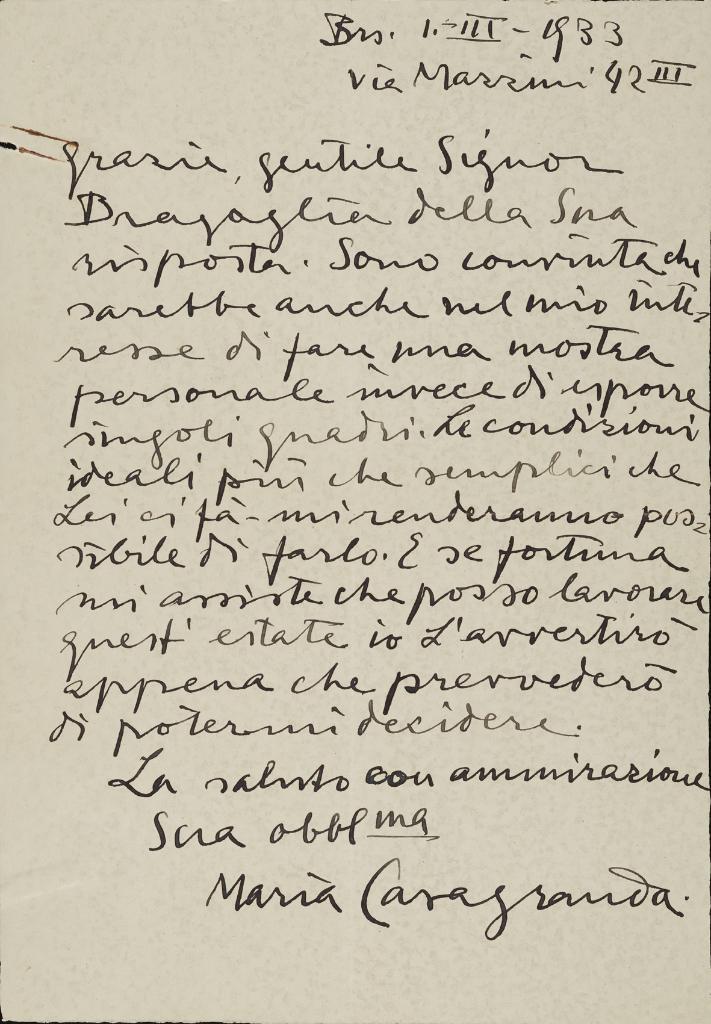 Brs. 1.-III-1933
via Mazzini 42 III
grazie, gentile Signor
Bragaglia della Sua
risposta. Sono convinta che
sarebbe anche nel mio inte=
resse di fare una mostra
personale invece di esporre
singoli quadri. Le condizioni
ideali più che semplici che
Lei ci fà - mi renderanno pos=
sibile di farlo. E se fortuna
mi assiste che posso lavorare
quest' estate io L'avvertirò
appena che prevvederò
di potermi decidere.
La saluto con ammirazione
Sua obblma
Maria Casagranda.